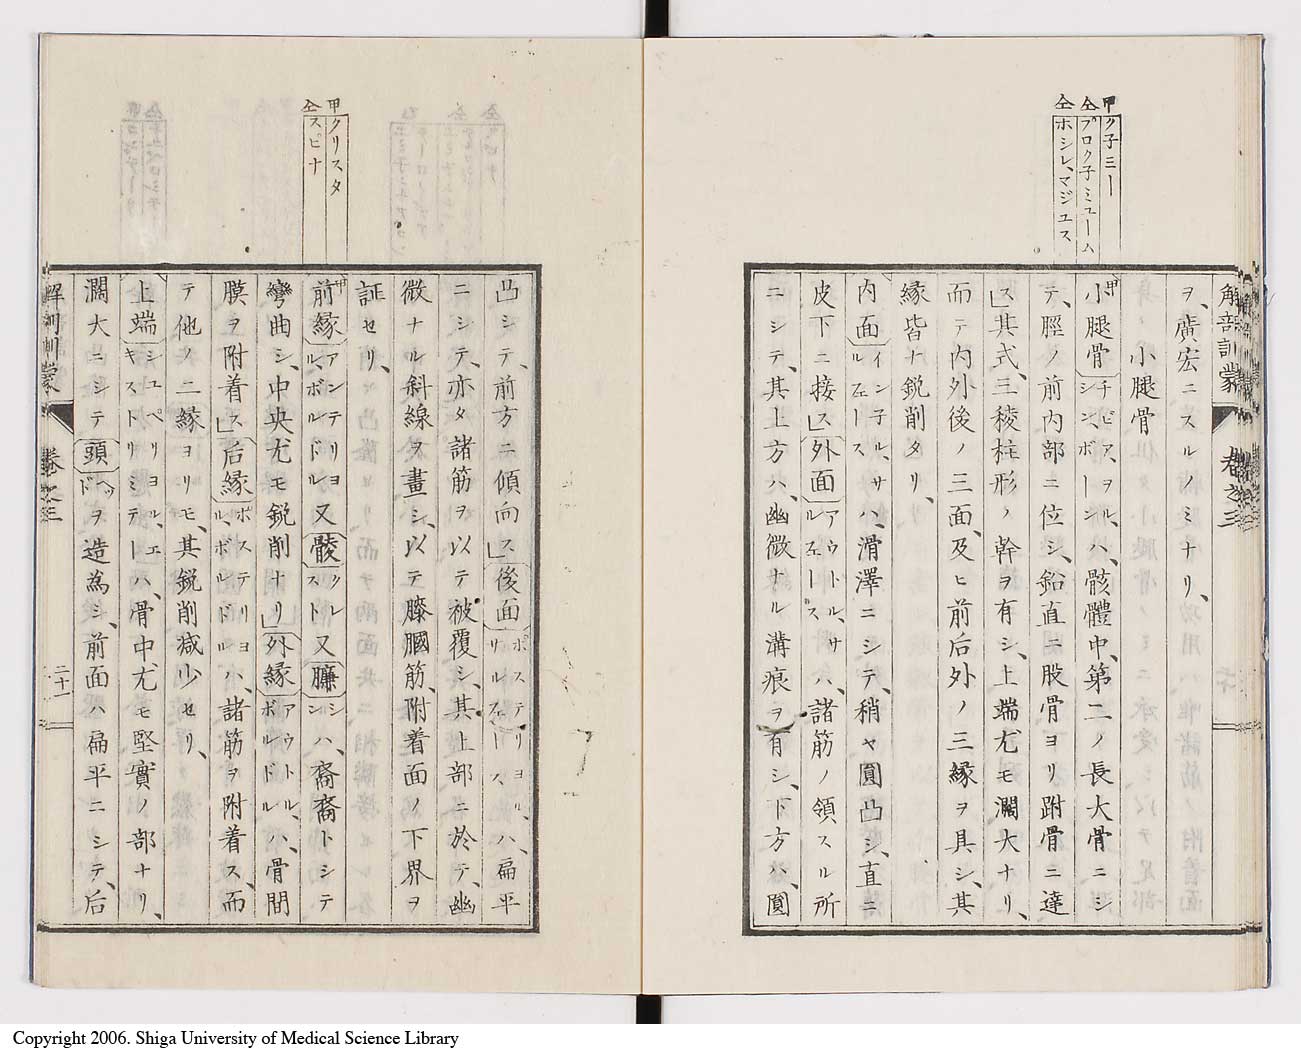 甲ク子ミー
仝プロク子ミューム
仝ホシレ、マジュス
解部訓蒙 卷之三
ヲ、廣宏ニスルノミナリ、
小腿骨
甲小腿骨チビア、ヲル、シン、ボーンハ、骸體中、第二ノ長大骨ニシ
テ、脛ノ前内部ニ位シ、鉛直ニ股骨ヨリ跗骨ニ達
ス」其式、三稜柱形ノ幹ヲ有シ、上端尤モ濶大ナリ、
而テ内外後ノ三面、及ヒ前后外ノ三縁ヲ具シ、其
縁皆ナ鋭削タリ、
内面イン子ル、サルヱースハ、滑澤ニシテ、稍ヤ圓凸シ、直ニ
皮下ニ接ス」外面アウトル、サルヱースハ、諸筋ノ領スル所
ニシテ、其上方ハ、幽微ナル溝痕ヲ有シ、下方ハ、圓
甲クリスタ
仝スピナ
凸シテ、前方ニ傾向ス」後面ポステリヨル、サルヱースハ、扁平
ニシテ、亦タ諸筋ヲ以テ被覆シ、其上部ニ於テ、幽
微ナル斜線ヲ畫シ、以テ膝膕筋、附着面ノ下界ヲ
証セリ、
甲前縁アンテリヨル、ボルドル又䯊クレスト又臁シンハ、裔裔トシテ
彎曲シ、中央尤モ鋭削ナリ」外縁アウトル、ボルドルハ、骨間
膜ヲ附着ス」后縁ポステリヨル、ボルドルハ、諸筋ヲ附着ス、而
テ他ノ二縁ヨリモ、其鋭削减少セリ、
上端シユペリヨル、エキストリミテーハ、骨中尤モ堅實ノ部ナリ、
濶大ニシテ頭ヘッドヲ造為シ、前面ハ扁平ニシテ、后
解剖訓蒙 卷之三 二十一
Copyright 2006. Shiga University of Medical Science Library